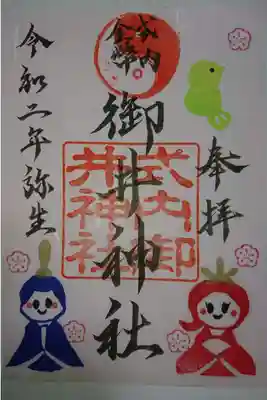 奉拝
式内
金幣
御井神社
式内御
井神社
令和二年弥生